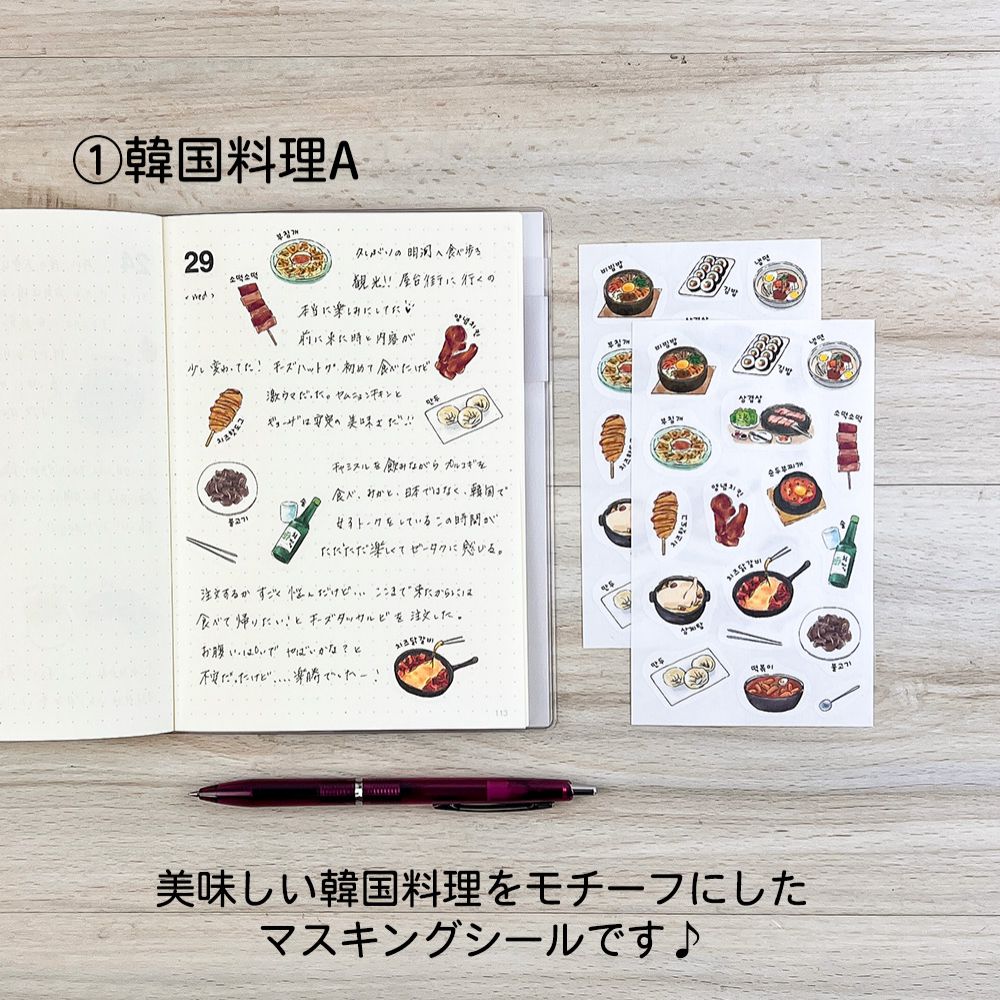 ①韓国料理A
29
<wed>
부침개
소떡소떡
양념치킨
치즈핫도그
만두
불고기
술
치즈닭갈비
久しぶりの明洞へ食べ歩き
観光!! 屋台街に行くの
本当に楽しみにしてた
前に来た時と内容が
少し変わってた! チーズハットグ初めて食べたけど
激ウマだった。ヤムニョンチキンと
は安定の美味しさだ!!
チャミスルを飲みながらプルコギを
食べ、みかと、日本ではなく、韓国で
女子トークをしているこの時間が
ただただ楽しくてゼータクに感じる。
注文するかすごく悩んだけど... ここまで来たからには
食べて帰りたい!とチーズタッカルビを注文した。
お腹いっぱいでやばいかな?と
不安だったけど....楽勝でしたー!
113
비빔밥
김밥
냉면
삼겹살
부침개
비빔밥
김밥
냉면
부침개
삼겹살
소떡소떡
순두부찌개
양념치킨
치즈핫도그
술
치즈닭갈비
삼계탕
불고기
만두
떡볶이
만두
美味しい韓国料理をモチーフにした
マスキングシールです♪